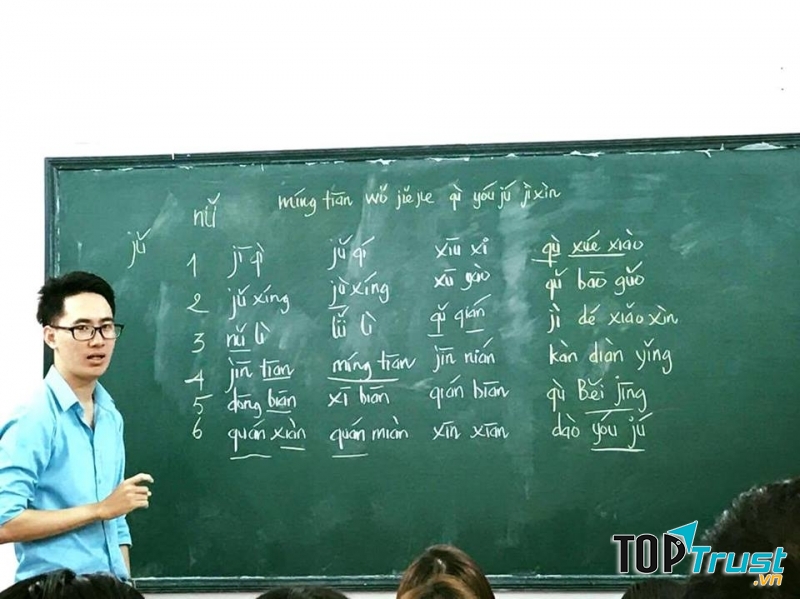 míng tiān wǒ jiějie qù yóu jú jì xìn
nǚ
jǔ
1 jī qì jǔ qí xiū xi qù xué xiào
2 jǔ xíng jù xíng xū yào qǔ bāo guǒ
3 nǔ lì lǜ lì qǔ qián jì dé xiǎo xìn
4 jīn tiān míng tiān jīn nián kàn diàn yǐng
5 dōng biān xī biān qián biān qù Běi jīng
6 quán xiàn quán miàn xīn xiān dào yóu jú
TOPTrust.vn